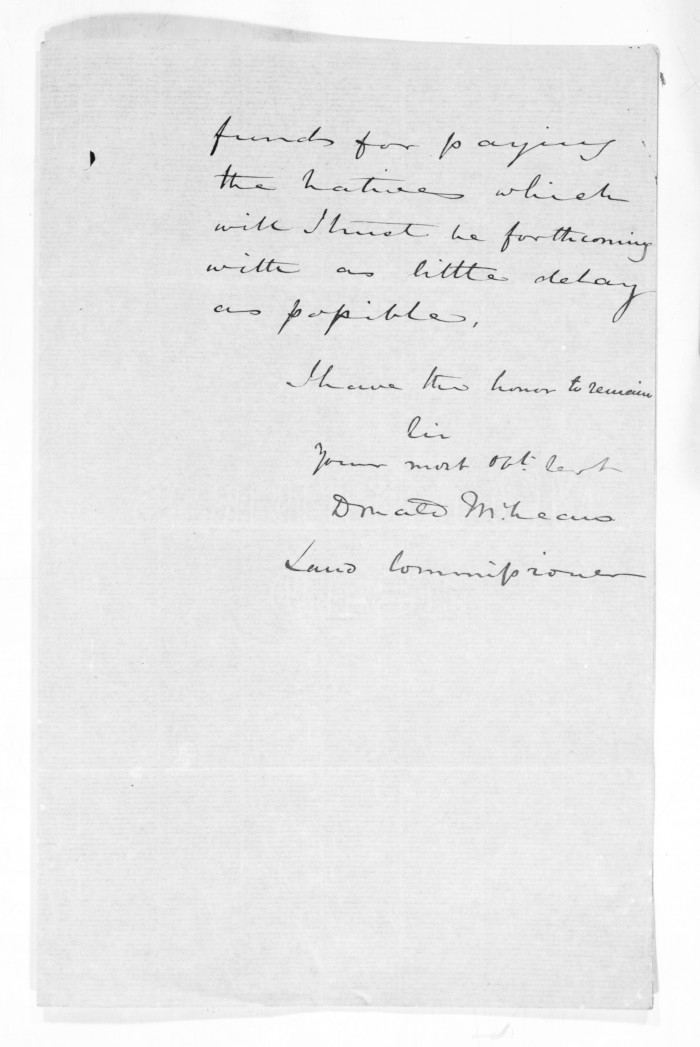 funds for paying
the natives which
will I trust be forthcoming
with as little delay
as possible.
I have the honor to remain
Sir
Your most obt. servt
Donald McLean
Land Commissioner